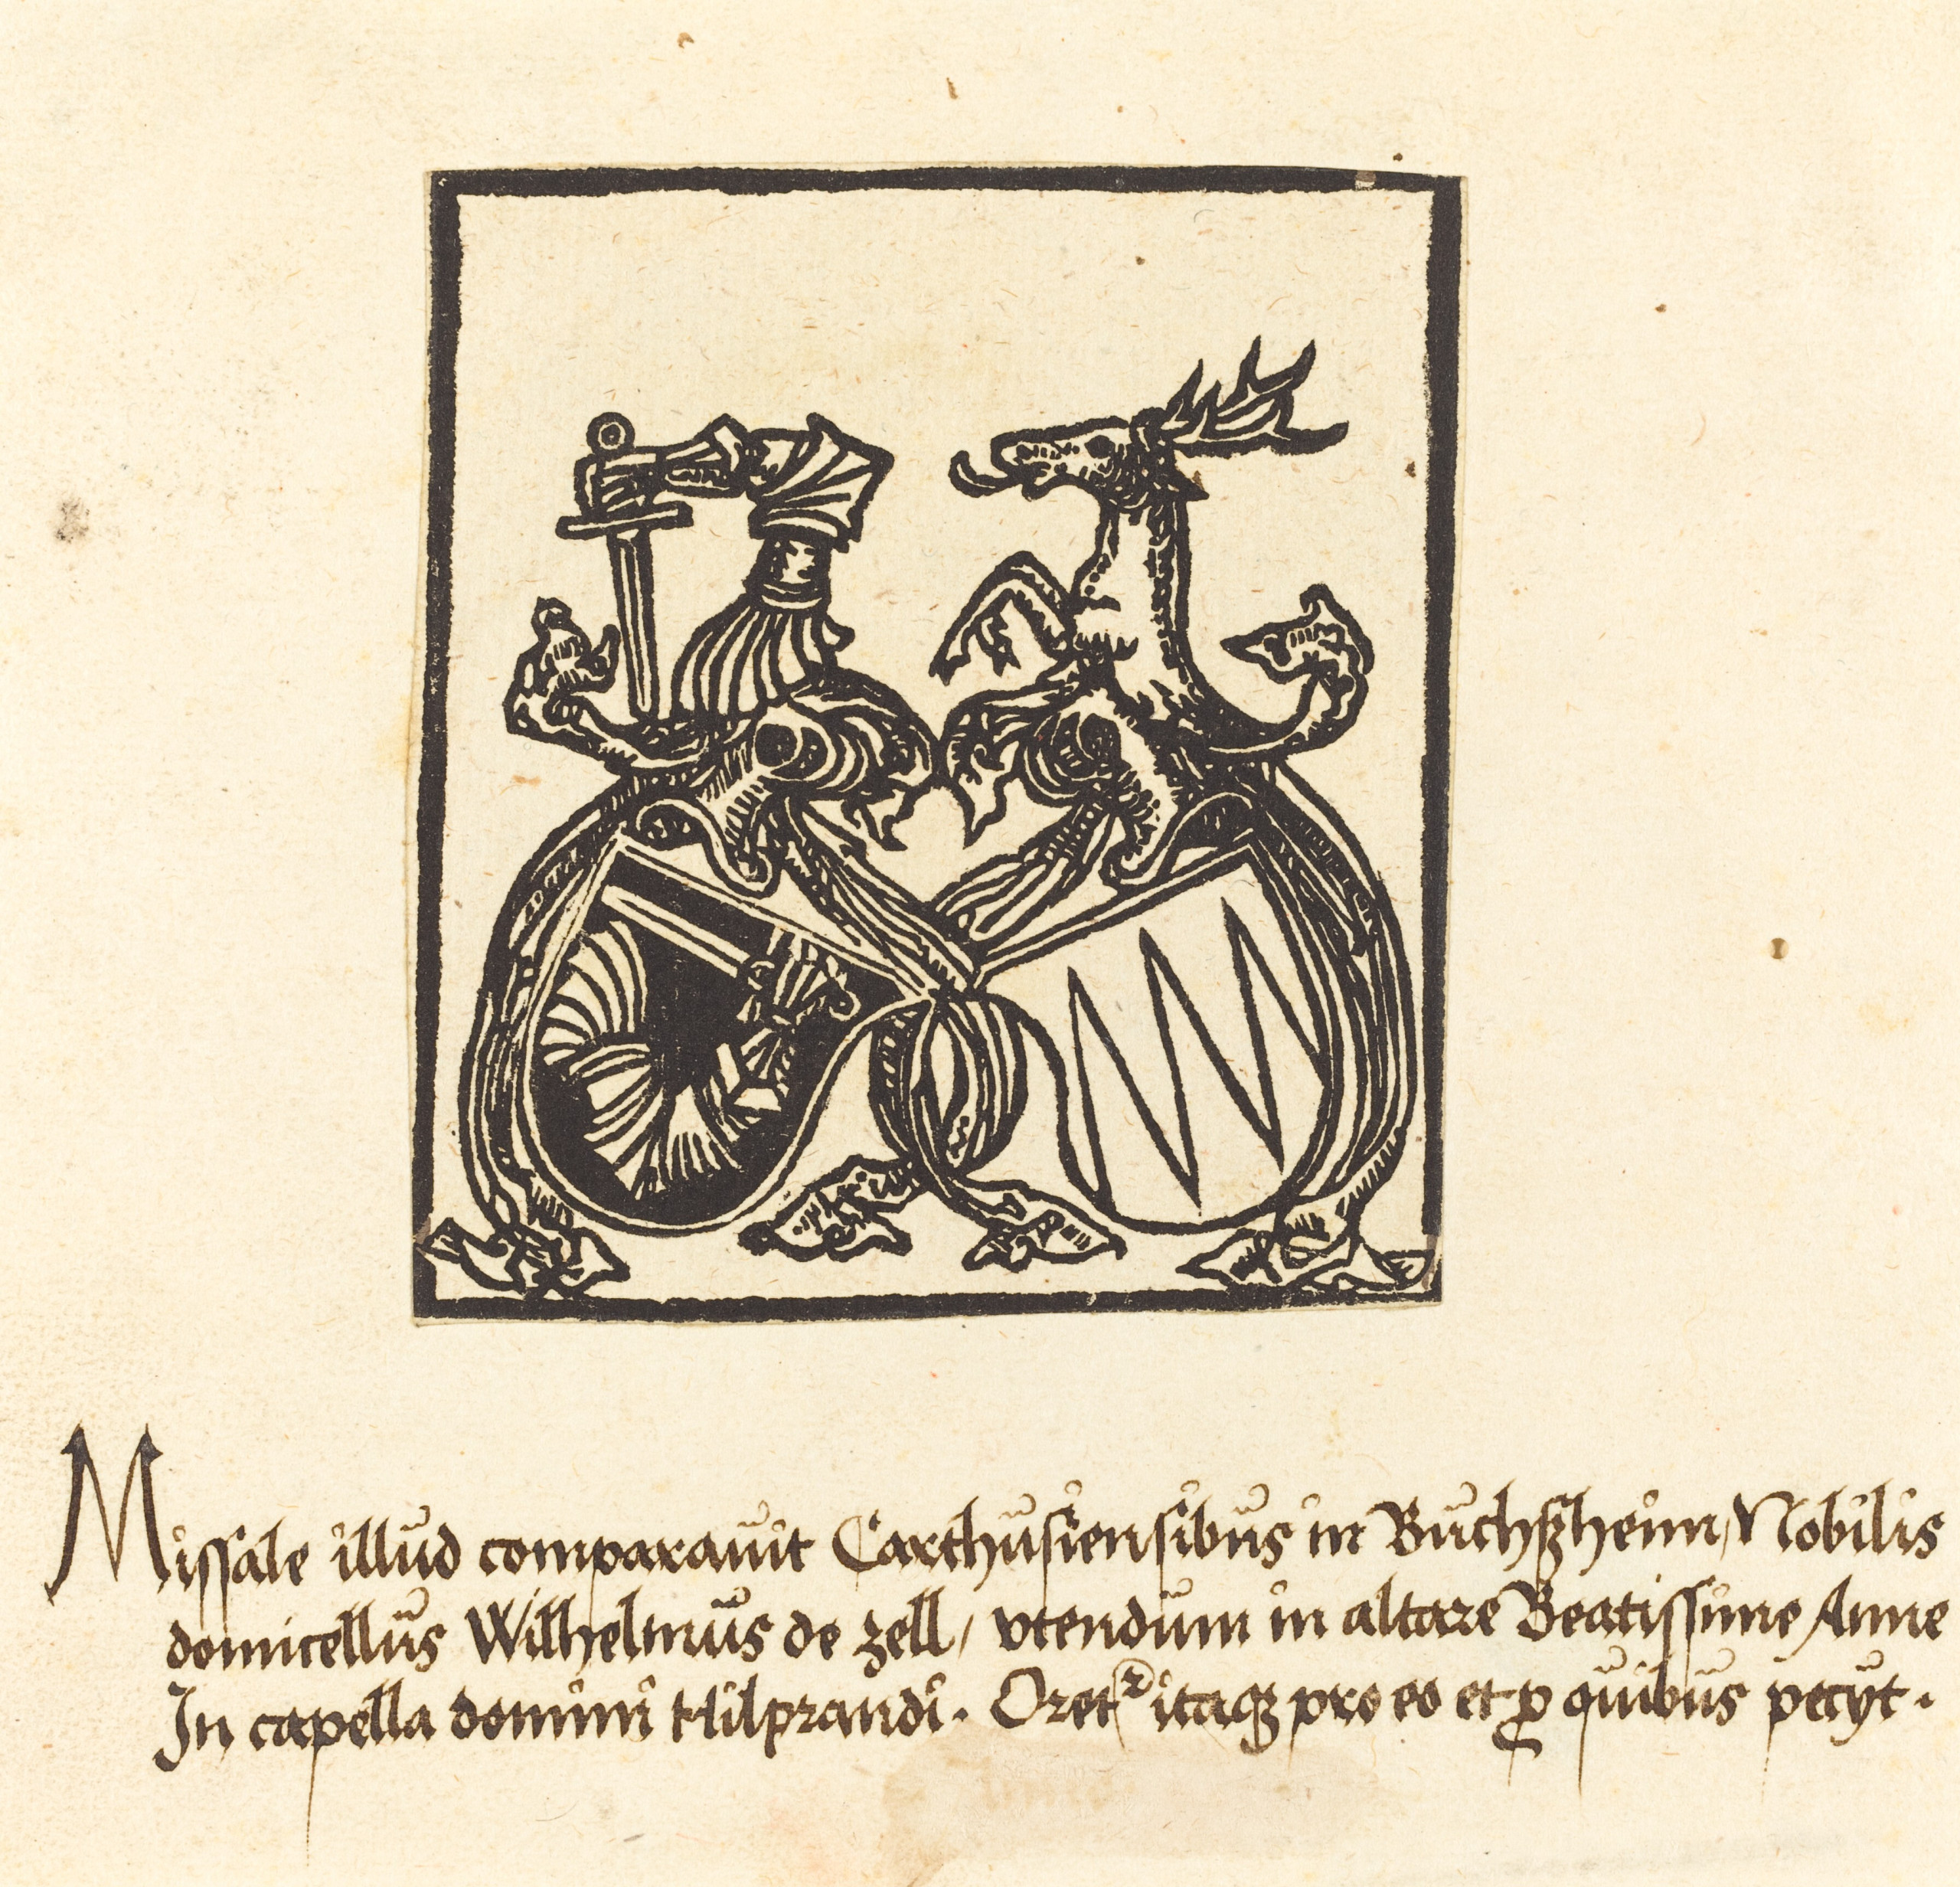 Missale illud comparauit Carthusiensibus in Buchßheim, Nobilis
domicellus Wilhelmus de zell, vtendum in altare Beatissime Anne
In capella domini Hilprandi. Oretr itaqꝫ pro eo et ꝓ quibus pecyt.